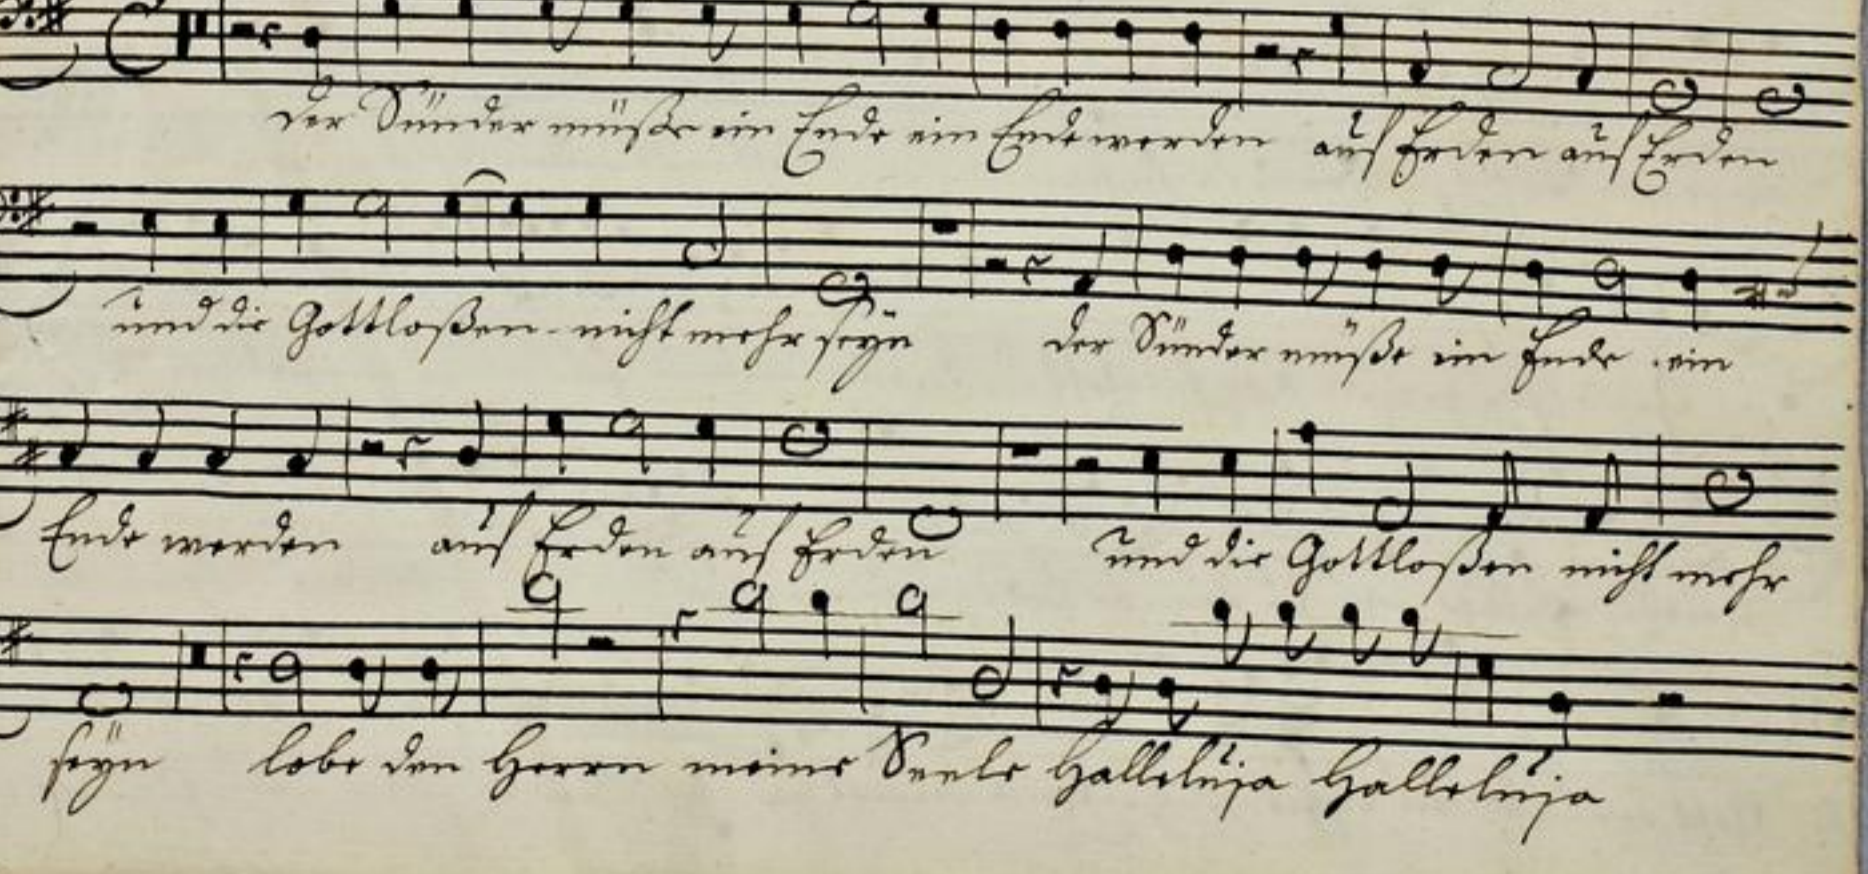 der Sünder müße ein Ende ein Ende werden auf Erden auf Erden
und die Gottloßen nicht mehr seyn der Sünder müße ein Ende ein
Ende werden auf Erden auf Erden und die Gottloßen nicht mehr
seyn lobe den Herrn meine Seele Halleluja Halleluja